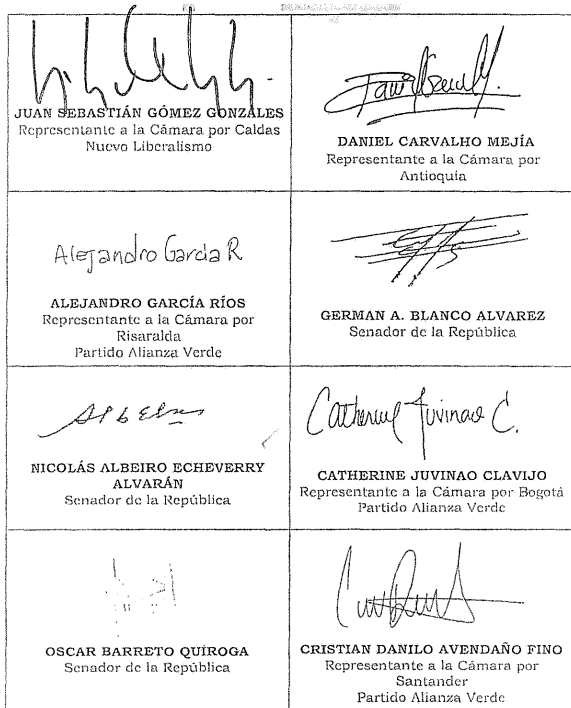 JUAN SEBASTIÁN GÓMEZ GONZÁLES
Representante a la Cámara por Caldas
Nuevo Liberalismo
DANIEL CARVALHO MEJÍA
Representante a la Cámara por
Antioquía
Alejandro García R
ALEJANDRO GARCÍA RÍOS
Representante a la Cámara por
Risaralda
Partido Alianza Verde
GERMAN A. BLANCO ALVAREZ
Senador de la República
NICOLÁS ALBEIRO ECHEVERRY
ALVARÁN
Senador de la República
Catherine Juvinao C.
CATHERINE JUVINAO CLAVIJO
Representante a la Cámara por Bogotá
Partido Alianza Verde
OSCAR BARRETO QUIROGA
Senador de la República
CRISTIAN DANILO AVENDAÑO FINO
Representante a la Cámara por
Santander
Partido Alianza Verde